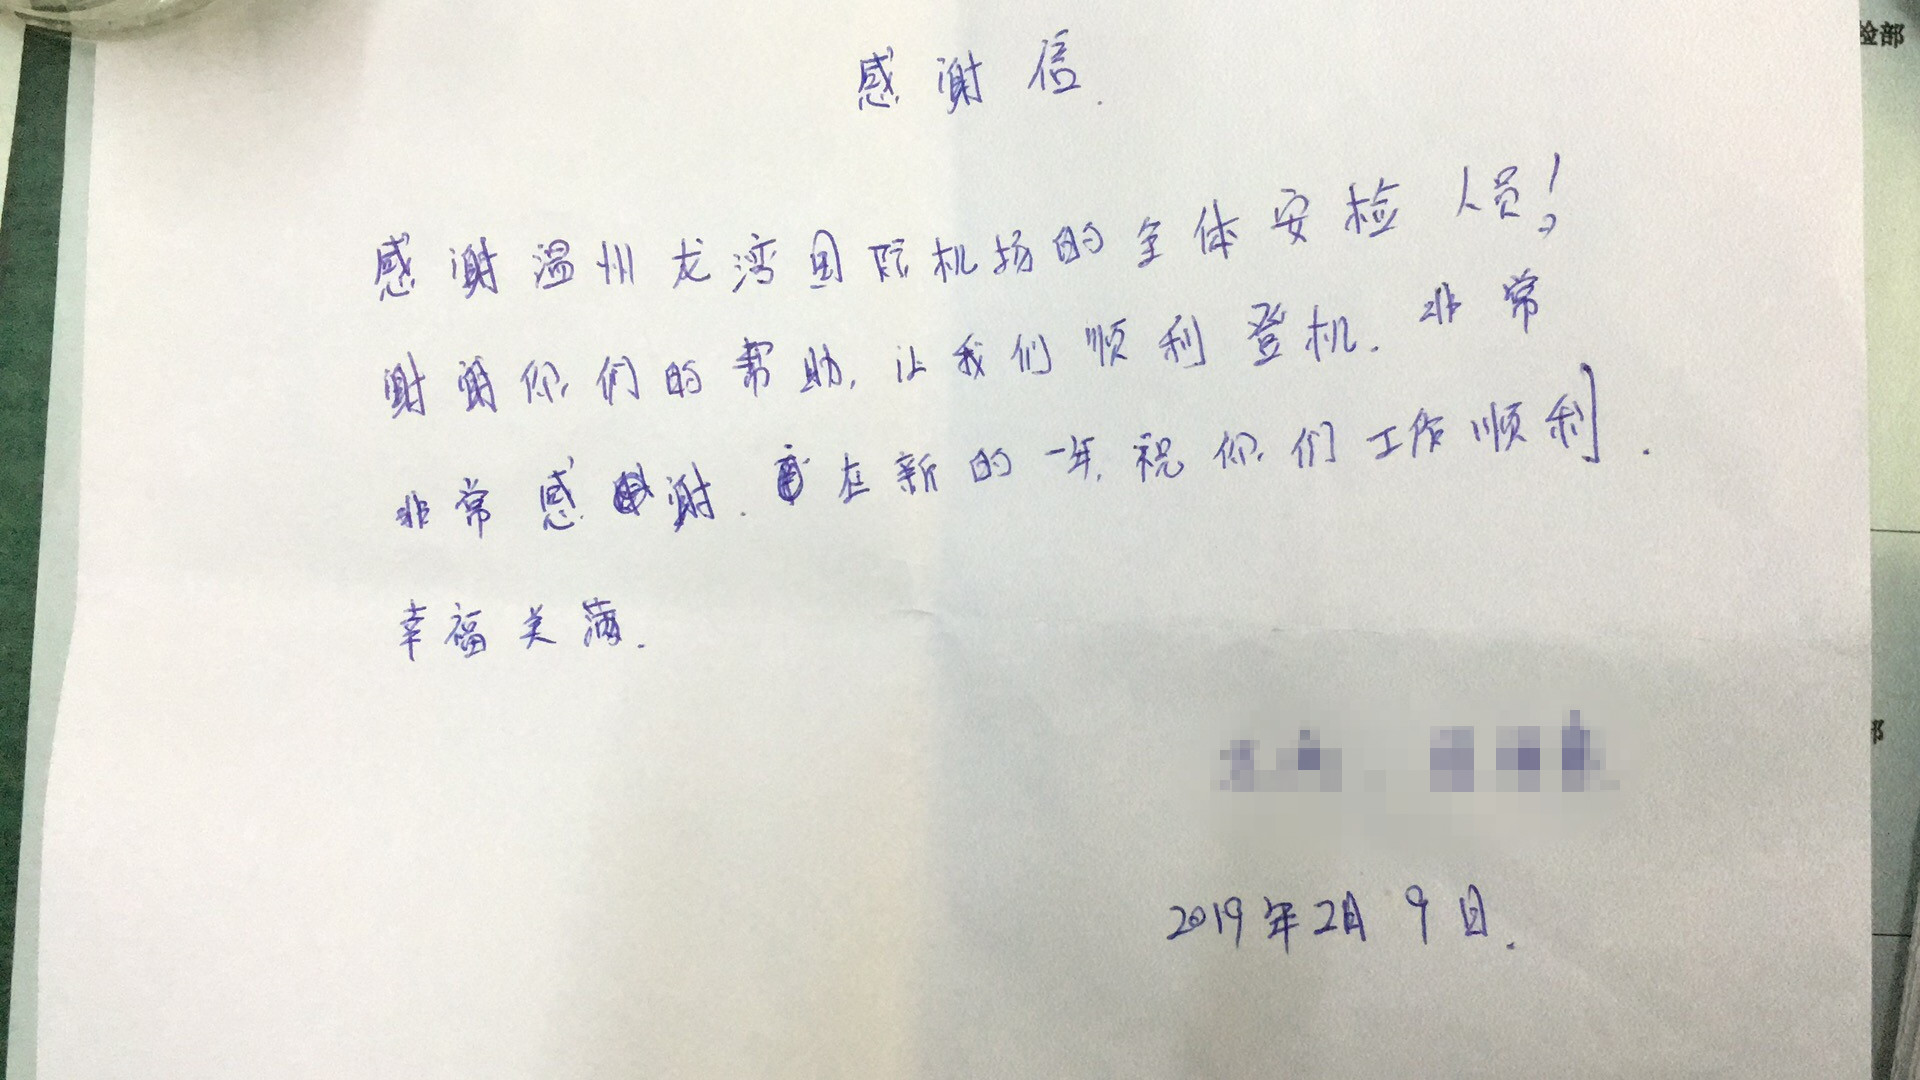 感谢信.
感谢温州龙湾国际机场的全体安检人员!
谢谢你们的帮助,让我们顺利登机.非常
非常感谢.在新的一年,祝你们工作顺利.
幸福美满.
2019年2月9日.
检部
部